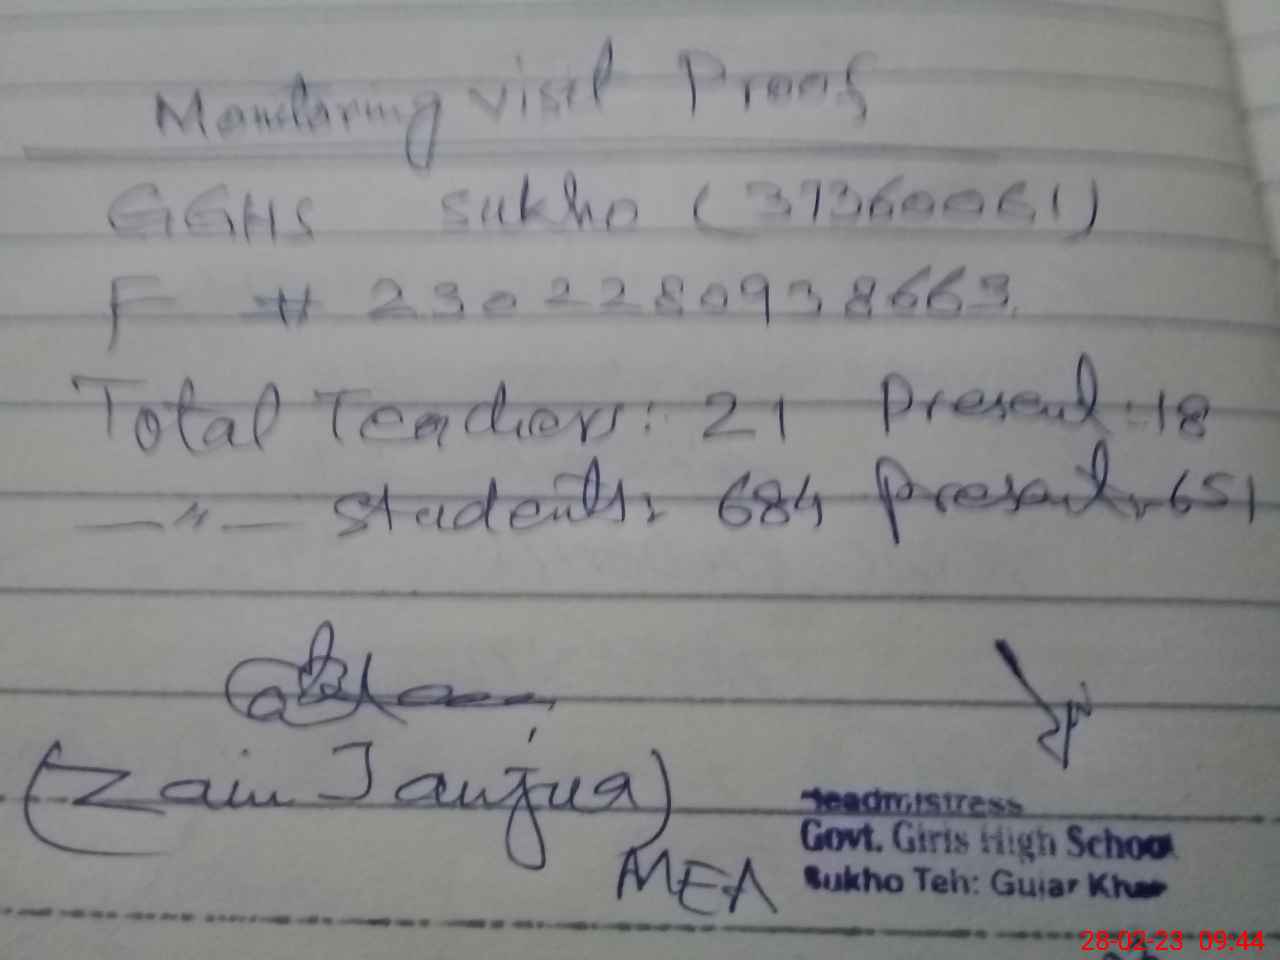 Monitoring visit Proof
GGHS Sukho (37360061)
F # 2302280938663
Total Teachers: 21 Present: 18
—〃— Students: 684 Present: 651
(Zain Janjua)
MEA
Headmistress
Govt. Girls High School
Sukho Teh: Gujar Khan
28-02-23 09:44